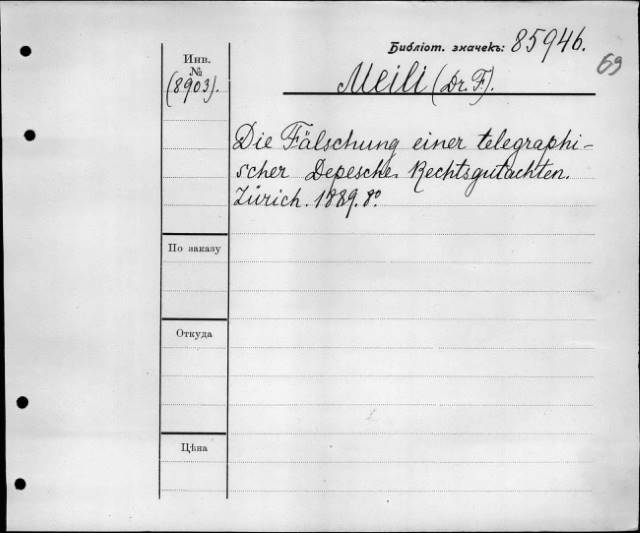 Библіот. значекъ: 85946.
69
Инв.
№
(8903).
Meili (Dr. F.).
Die Fälschung einer telegraphi-
scher Depesche. Rechtsgutachten.
Zürich. 1889. 8º.
По заказу
Откуда
Цѣна